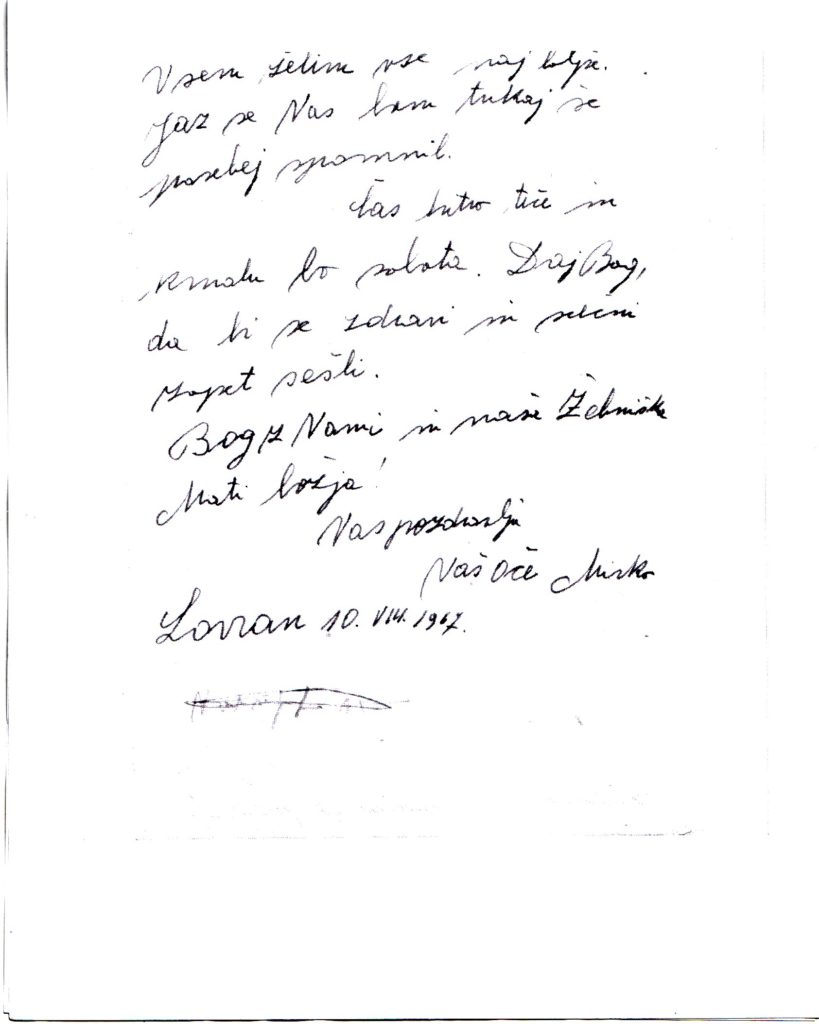 Vsem želim vse najboljše.
Jaz se Vas bom tukaj še
posebej spomnil.
Čas hitro teče in
kmalu bo sobota. Daj Bog,
da bi se zdravi in srečni
zopet sešli.
Bog z Vami in naša Žebniška
Mati božja!
Vas pozdravlja
Vaš Oče Mirko
Lovran 10. VIII. 1967.